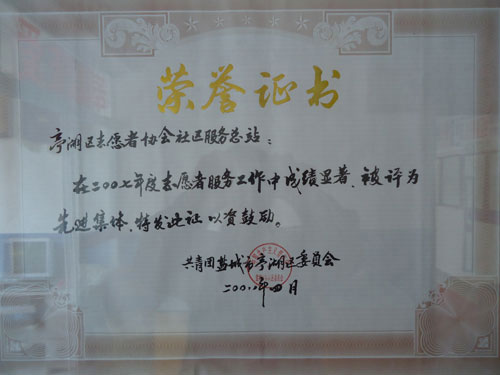 荣誉证书
亭湖区志愿者协会社区服务总站:
在二00七年度志愿者服务工作中成绩显著,被评为
先进集体,特发此证以资鼓励。
共青团盐城市亭湖区委员会
年四月